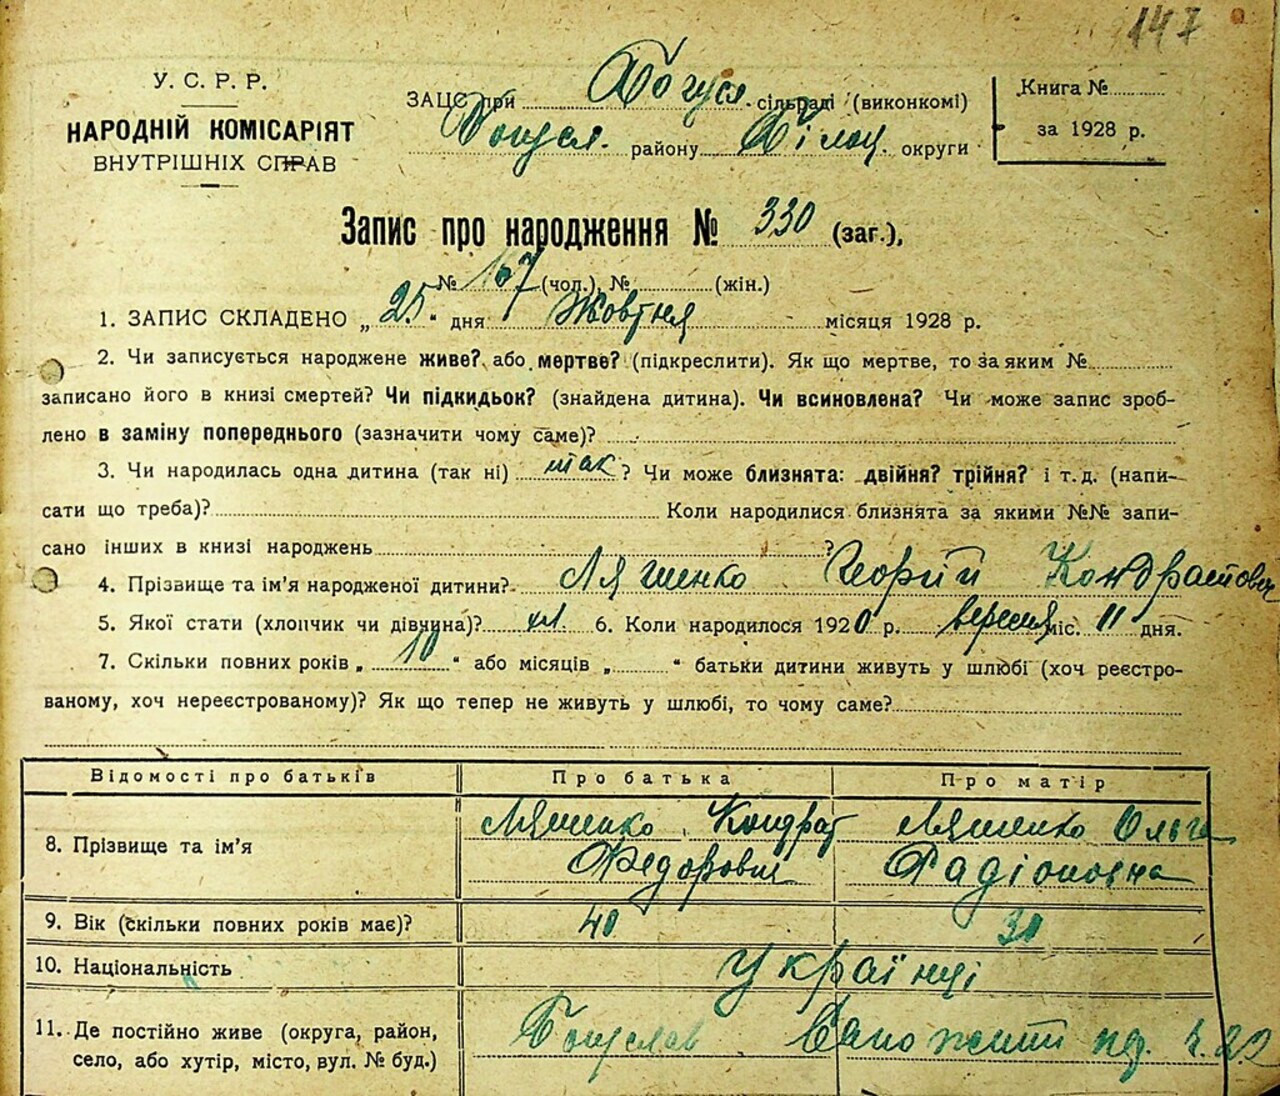 147
У. С. Р. Р.
НАРОДНІЙ КОМІСАРІЯТ
ВНУТРІШНІХ СПРАВ
ЗАЦС при Богусл. сільраді (виконкомі)
Богусл. району Білоц. округи
Книга №
за 1928 р.
Запис про народження № 330 (заг.),
№ 167 (чол.), № (жін.)
1. ЗАПИС СКЛАДЕНО „ 25 “ дня Жовтня місяця 1928 р.
2. Чи записується народжене живе? або мертве? (підкреслити). Як що мертве, то за яким №
записано його в книзі смертей? Чи підкидьок? (знайдена дитина). Чи всиновлена? Чи може запис зроб-
лено в заміну попереднього (зазначити чому саме)?
3. Чи народилась одна дитина (так ні) так ? Чи може близнята: двійня? трійня? і т. д. (напи-
сати що треба)? Коли народилися близнята за якими №№ запи-
сано інших в книзі народжень ?
4. Прізвище та ім’я народженої дитини? Ляшенко Георгій Кондратович
5. Якої стати (хлопчик чи дівчина)? чл. 6. Коли народилося 1920 р. вересня міс. 11 дня.
7. Скільки повних років „ 10 “ або місяців „ “ батьки дитини живуть у шлюбі (хоч реєстро-
ваному, хоч нереєстрованому)? Як що тепер не живуть у шлюбі, то чому саме?
Відомості про батьків Про батька Про матір
8. Прізвище та ім’я Ляшенко Кондрат Ляшенко Ольга
Федорович Радіоновна
9. Вік (скільки повних років має)? 40 30
10. Національність Українці
11. Де постійно живе (округа, район,
село, або хутір, місто, вул. № буд.) Богуслав